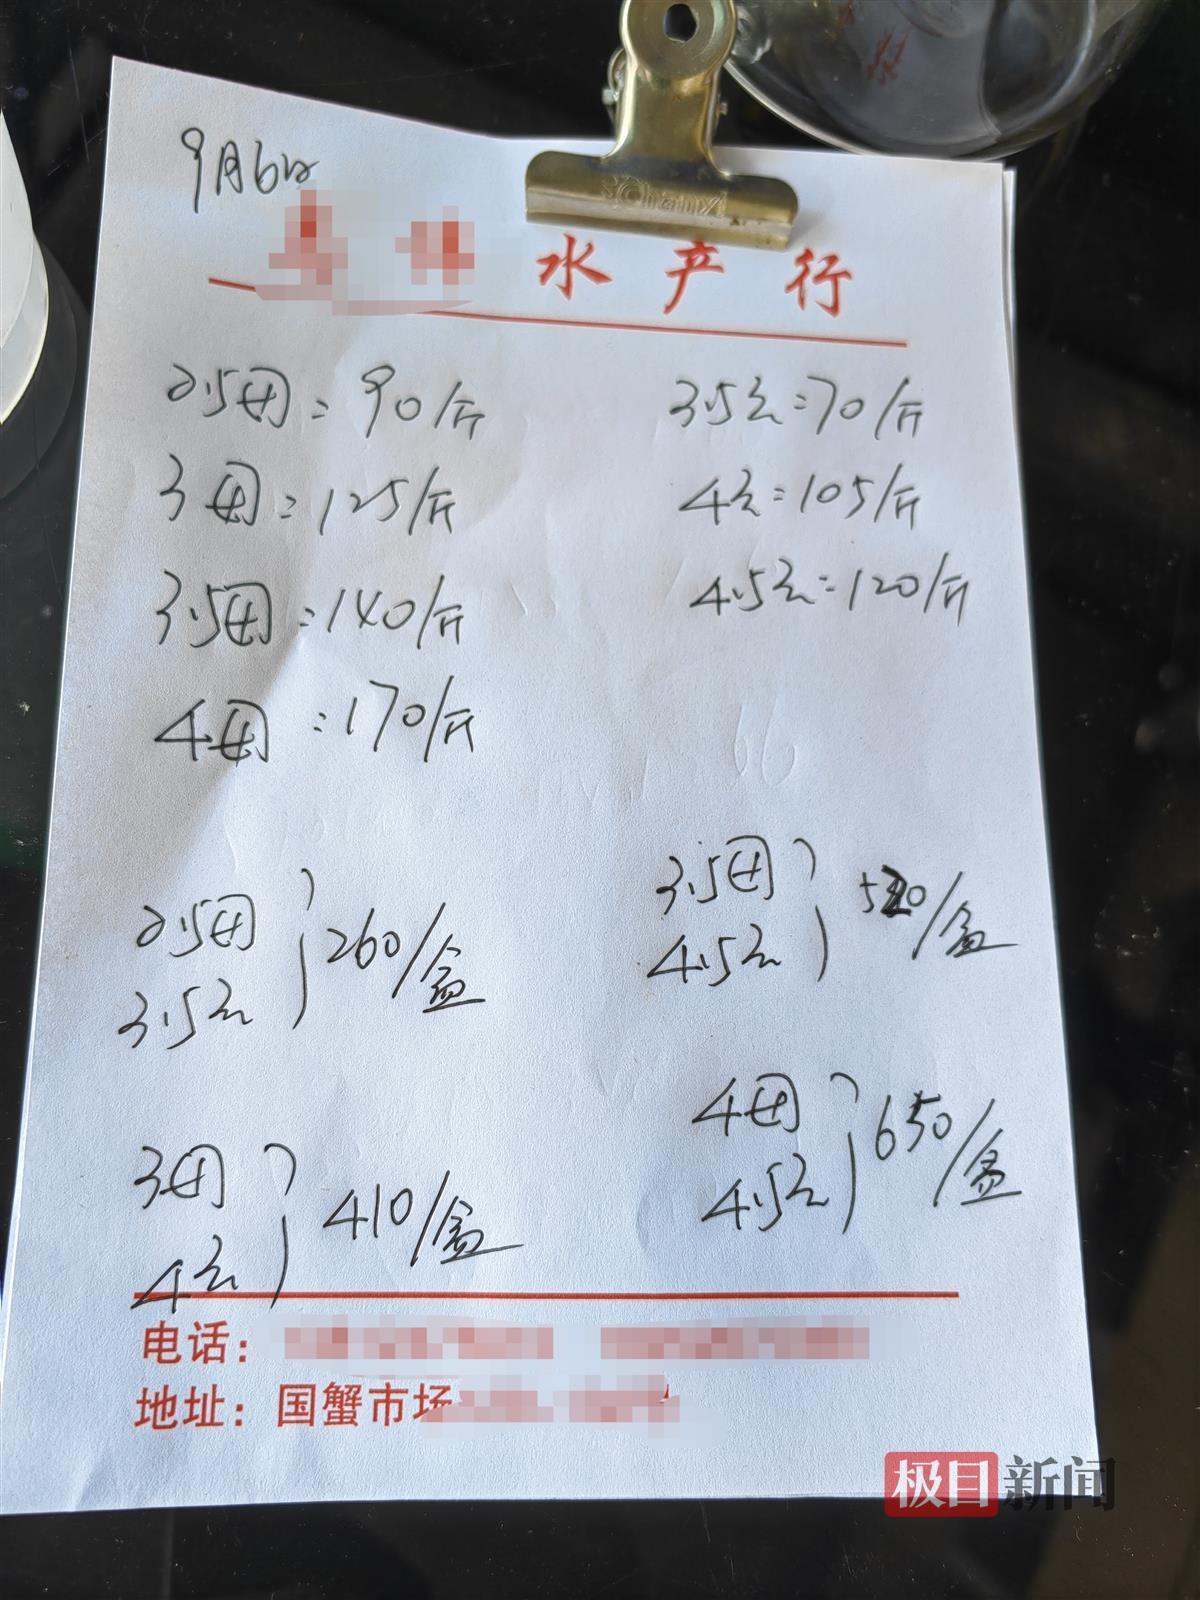 9月6日
水产行
2.5母=90/斤
3.5公=70/斤
3母=125/斤
4公=105/斤
3.5母=140/斤
4.5公=120/斤
4母=170/斤
2.5母
3.5公
260/盒
3.5母
4.5公
520/盒
3母
4公
410/盒
4母
4.5公
650/盒
电话:
地址:国蟹市场
极目新闻